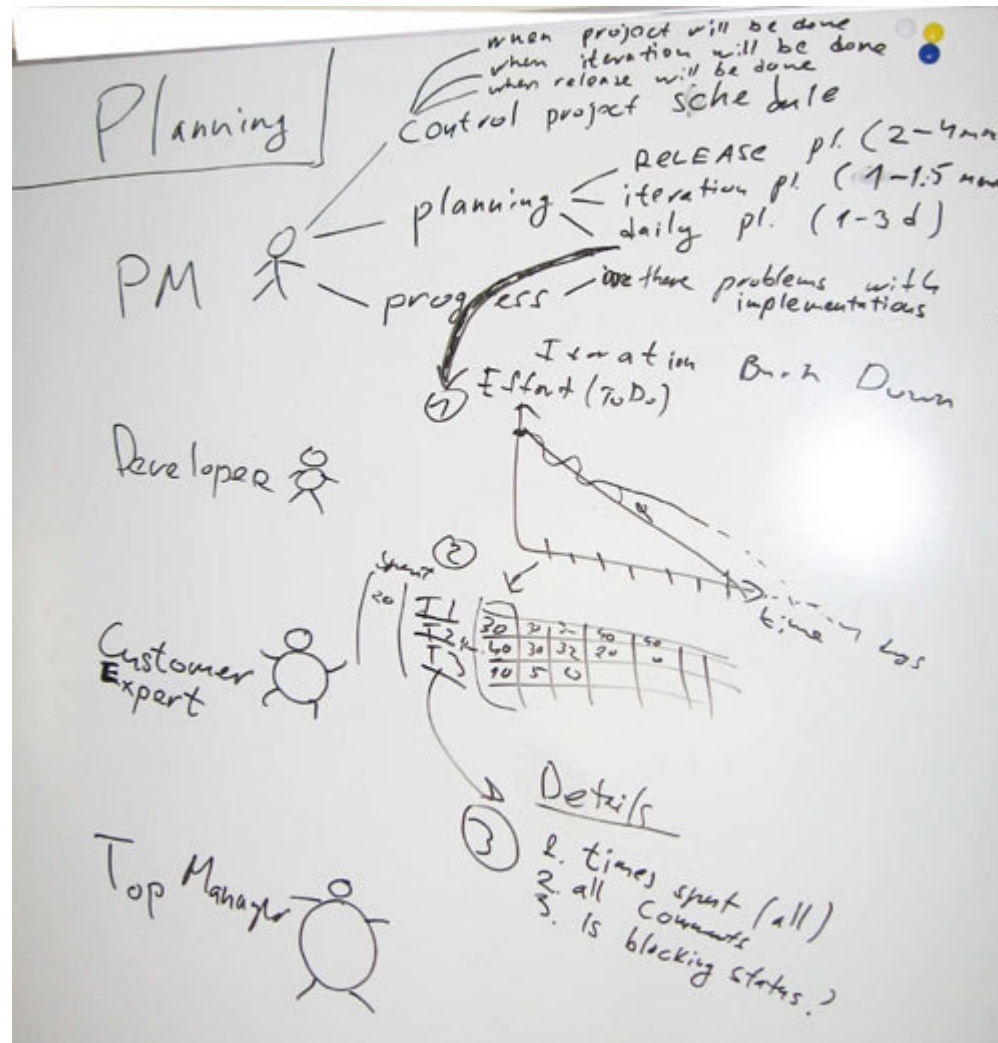 Planning
when project will be done
when iteration will be done
when release will be done
control project schedule
planning
RELEASE pl. (2-4
iteration pl. (1-1.5
daily pl. (1-3 d)
PM
progress
there problems with
implementations
Iteration Burn Down
1
Effort (ToDo)
Developer
time
2
Spent
20
T1
T2
T3
30
40 30 32 20
10 5 0
Customer
Expert
3
Details
1. times spent (all)
2. all comments
3. Is blocking status?
Top Manager